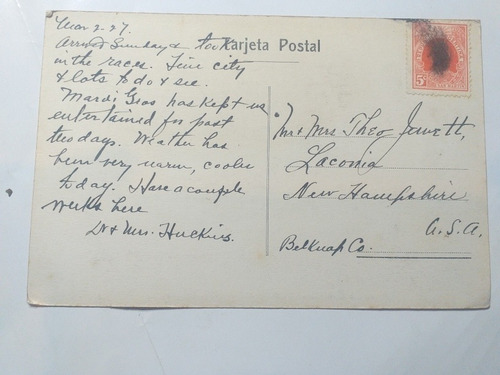 Mar 2-27.
Arrived Sunday & took
in the races. Fine city
& lots to do & see.
Mardi Gras has kept us
entertained for past
two days. Weather has
been very warm, cooler
today. Have a couple
weeks here
Dr & Mrs. Huckins.
Tarjeta Postal
5
Mr & Mrs Theo Jewett,
Laconia
New Hampshire
U.S.A.
Belknap Co.